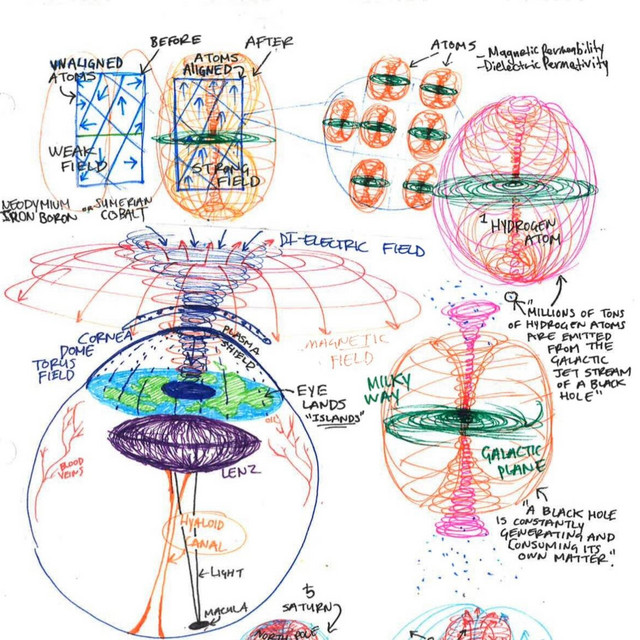 BEFORE
AFTER
UNALIGNED
ATOMS
ATOMS
ALIGNED
WEAK
FIELD
STRONG
FIELD
NEODYMIUM
IRON BORON
OR SUMERIAN
COBALT
ATOMS
- Magnetic Permeability
- Dielectric Permativity
1 HYDROGEN
ATOM
DI-ELECTRIC FIELD
"MILLIONS OF TONS
OF HYDROGEN ATOMS
ARE EMITTED
FROM THE
GALACTIC
JET STREAM
OF A BLACK
HOLE"
CORNEA
DOME
TORUS
FIELD
PLASMA
SHIELD
MAGNETIC
FIELD
EYE
LANDS
"ISLANDS"
MILKY
WAY
GALACTIC
PLANE
BLOOD
VEINS
OIL
LENZ
HYALOID
CANAL
LIGHT
MACULA
"A BLACK HOLE
IS CONSTANTLY
GENERATING AND
CONSUMING ITS
OWN MATTER."
♄
SATURN
NORTH POLE